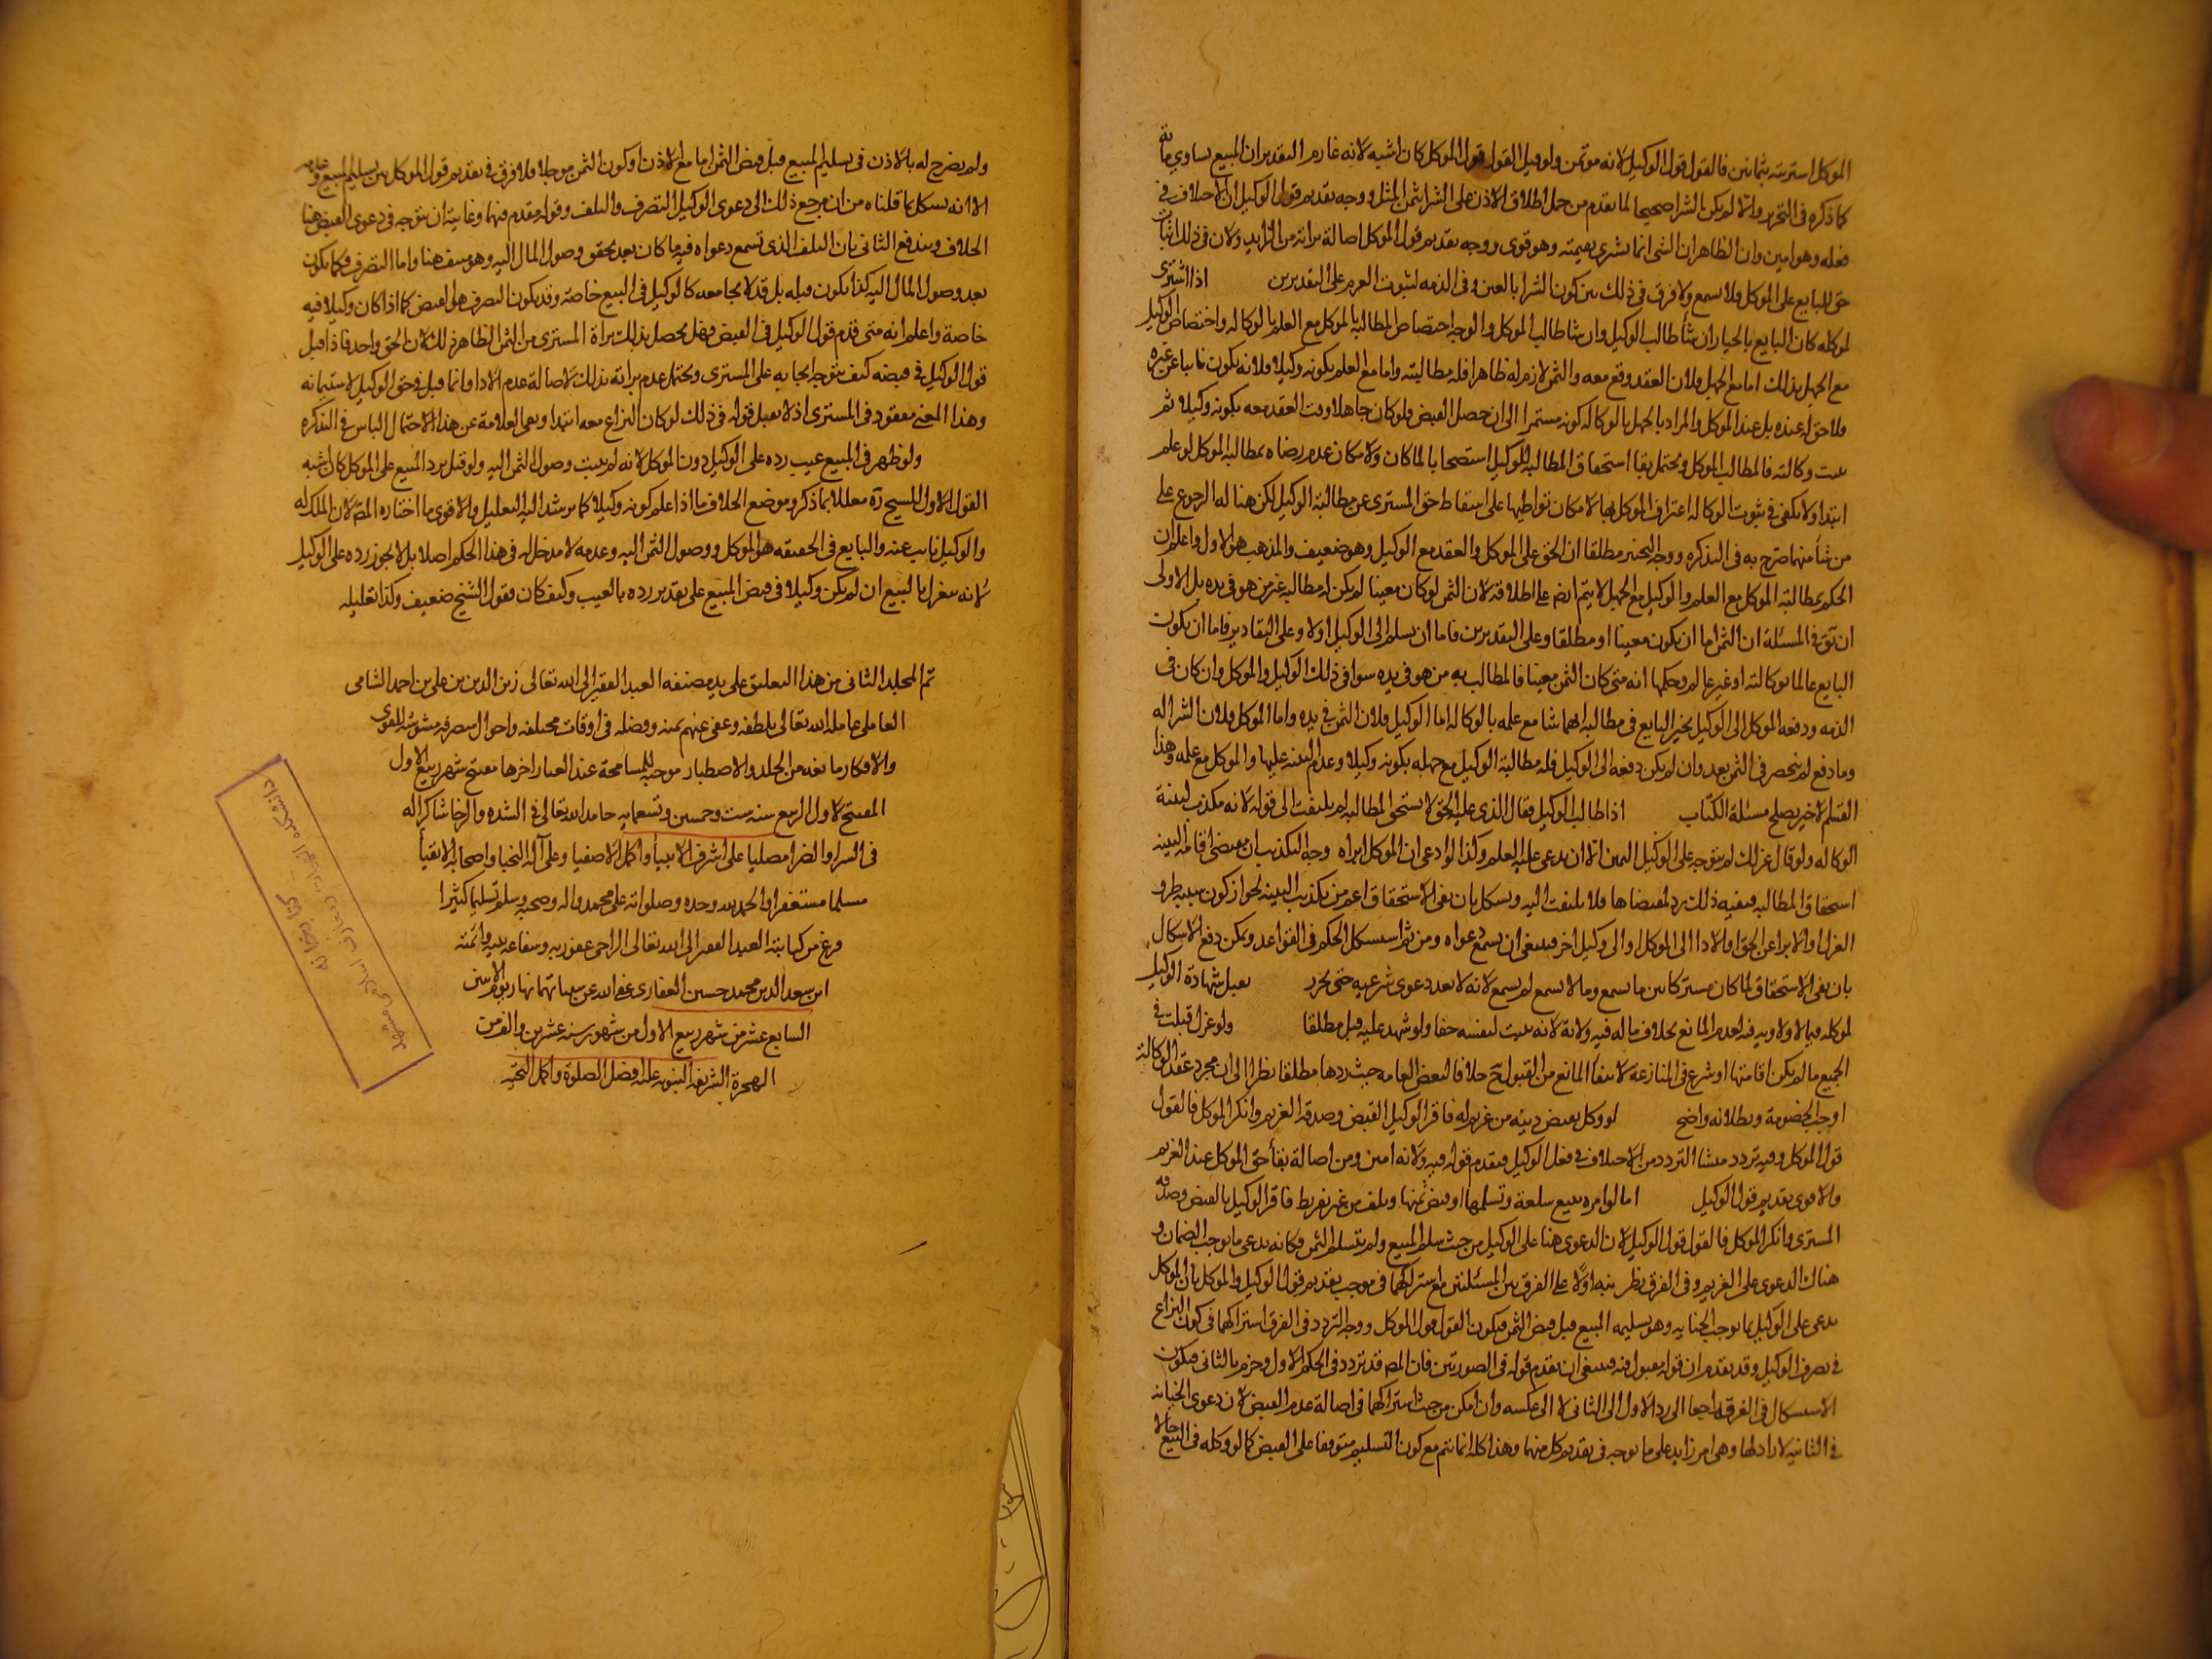 الموكل اشتريته بثمانين فالقول قول الوكيل لانه مؤتمن ولو قيل القول قول الموكل كان اشبه لانه غارم التقدير ان المبيع يساوي مائة
كما ذكره في التحرير والا لم يكن الشرا صحيحا لما تقدم من حمل اطلاق الاذن على الشرا بثمن المثل ووجه تقديم قول الوكيل ان الاختلاف في
فعله وهو امين وان الظاهر ان الشي انما يشترى بقيمته وهو قوي ووجه تقديم قول الموكل اصالة براته من الزايد ولان في ذلك اثبات
حق للبايع على الموكل فلا يسمع ولا فرق في ذلك بين كون الشرا بالعين وفي الذمه لثبوت الغرم على التقديرين اذا اشترى
لموكله كان البايع بالخيار ان شأ طالب الوكيل وان شا طالب الموكل والوجه اختصاص المطالبه بالموكل مع العلم بالوكاله واختصاص الوكيل
مع الجهل بذلك اما مع الجهل فلان العقد وقع معه والثمن لازم له ظاهرا فله مطالبته واما مع العلم بكونه وكيلا فلانه يكون نايبا عن غيره
فلا حق له عنده بل عند الموكل والمراد بالجهل بالوكاله كونه مستمرا الى ان حصل القبض فلو كان جاهلا وقت العقد معه بكونه وكيلا ثم
ثبت وكالته فالمطالب الموكل ويحتمل بقا استحقاق المطالبه للوكيل استصحابا لما كان ولامكان عدم رضاه بمطالبه الموكل لو علم
ابتدا ولا يكفي في ثبوت الوكاله اعتراف الموكل بها لامكان تواطيهما على اسقاط حق المسترى عن مطالبته الوكيل لكن هنا له الرجوع على
من شأ منهما صرح به في التذكره ووجه التخيير مطلقا ان الحق على الموكل والعقد مع الوكيل وهو ضعيف والمذهب هو الاول واعلم ان
الحكم بمطالبة الموكل مع العلم والوكيل مع الجهل لا يتم ايضا على اطلاقه لان الثمن لو كان معينا لم يكن له مطالبه غير من هو في يده بل الاولى
ان يق في المسئلة ان الثمن اما ان يكون معينا او مطلقا وعلى التقديرين فاما ان يسلم الى الوكيل او لا وعلى التقادير فاما ان يكون
البايع عالما بوكالته او غير عالم وحكمها انه متى كان الثمن معينا فالمطالب به من هو في يده سوا في ذلك الوكيل والموكل وان كان في
الذمه ودفعه الموكل الى الوكيل تخير البايع في مطالبه ايهما شا مع علمه بالوكاله اما الوكيل فلان الثمن في يده واما الموكل فلان الشرا له
وما دفع لم ينحصر في الثمن بعد وان لم يكن دفعه الى الوكيل فله مطالبة الوكيل مع جهله بكونه وكيلا وعدم البينه عليها والموكل مع علمه وهذا
القسم الاخير يصلح مسئلة الكتاب اذا طالب الوكيل فقال الذي عليه الحق لا يستحق المطالبه لم يلتفت الى قوله لانه مكذب لبينة
الوكاله ولو قال عزلك لم يتوجه على الوكيل اليمين الا ان يدعي عليه العلم وكذا لو ادعى ان الموكل ابراه وجه التكذيب ان مقتضى اقامة البينه
استحقاق المطالبه فنفيه ذلك يرد لمقتضاها فلا يلتفت اليه ويشكل بان نفي الاستحقاق اعم من تكذيب البينه لجواز كون سببه طرو
العزل او الابرا عن الحق او الادا الى الموكل او الى وكيل اخر فينبغي ان يسمع دعواه ومن ثم استشكل الحكم في القواعد ويمكن دفع الاشكال
بان نفي الاستحقاق لما كان مشتركا بين ما يسمع وما لا يسمع لم يسمع لانه لا يعد دعوى شرعيه حتى تحرر تقبل شهادة الوكيل
لموكله فيما لا ولايه فيه لعدم المانع بخلاف ما له فيه ولاية لانه يثبت لنفسه حقا ولو شهد عليه قبل مطلقا ولو عزل قبلت في
الجميع ما لم يكن اقامتها او شرع في المنازعة لانتفأ المانع من القبول ح خلافا لبعض العامه حيث ردها مطلقا نظرا الى ان مجرد عقد الوكالة
اوجب الخصومة وبطلانه واضح لو وكل بقبض دينه من غريم له فاقر الوكيل بالقبض وصدقه الغريم وانكر الموكل فالقول
قول الموكل وفيه تردد منشا التردد من الاختلاف في فعل الوكيل فيقدم قوله فيه ولانه امين ومن اصالة بقأ حق الموكل عند الغريم
والاقوى تقديم قول الوكيل اما لو امره ببيع سلعة وتسلمها او قبض ثمنها وتلف من غير تفريط فاقر الوكيل بالقبض وصدقه
المشترى وانكر الموكل فالقول قول الوكيل لان الدعوى هنا على الوكيل من حيث سلم المبيع ولم يتسلم الثمن فكانه يدعي ما يوجب الضمان و
هناك الدعوى على الغريم وفي الفرق نظر نبه اولا على الفرق بين المسئلتين مع اشتراكهما في موجب تقديم قول الوكيل والموكل بان الموكل
يدعي على الوكيل بما يوجب الخيانه وهو تسليمه المبيع قبل قبض الثمن فيكون القول قول الموكل ووجه التردد في الفرق اشتراكهما في كون النزاع
في تصرف الوكيل وقد تقدم ان قوله مقبول فيه فينبغي ان يقدم قوله في الصورتين فان المص قد تردد في الحكم الاول وجزم بالثاني فيكون
الاستشكال في الفرق راجعا الى رد الاول الى الثاني لا الى عكسه وان امكن من حيث اشتراكهما في اصالة عدم القبض لان دعوى الخيانه
في الثانيه لا راد لها وهي امر زايد على ما يوجه في تقديم كل منهما وهذا كله انما يتم مع كون التسليم متوقفا على القبض كما لو وكله في البيع حالا
ولم يصرح له بالاذن في تسليم المبيع قبل قبض الثمن اما مع الاذن او كون الثمن موجلا فلا فرق في تقديم قول الموكل بين تسليم المبيع وعدمه
الا انه يشكل بما قلناه من ان مرجع ذلك الى دعوى الوكيل التصرف والتلف وقوله مقدم فيهما وغايته ان يتوجه في دعوى القبض هنا
الخلاف ويندفع الثاني بان التلف الذي تسمع دعواه فيه ما كان بعد تحقق وصول المال اليه وهو منتف هنا واما التصرف فكما يكون
بعد وصول المال اليه كذا يكون قبله بل قد لا يجامعه كالوكيل في البيع خاصة وقد يكون التصرف هو القبض كما اذا كان وكيلا فيه
خاصة واعلم انه متى قدم قول الوكيل في القبض فهل يحصل بذلك براة المشترى من الثمن الظاهر ذلك لان الحق واحد فاذا قبل
قول الوكيل في قبضه كيف يتوجه ايجابه على المشترى ويحتمل عدم براته بذلك لاصالة عدم الادا وانما قبل في حق الوكيل لاستيمانه
وهذا المعنى مفقود في المشترى اذ لا يقبل قوله في ذلك لو كان النزاع معه ابتدا ونفى العلامة عن هذا الاحتمال الباس في التذكره
ولو ظهر في المبيع عيب رده على الوكيل دون الموكل لانه لم يثبت وصول الثمن اليه ولو قيل برد المبيع على الموكل كان اشبه
القول الاول للشيخ ره معللا بما ذكر وموضع الخلاف ما اذا علم كونه وكيلا كما يرشد اليه التعليل والاقوى ما اختاره المص لان الملك له
والوكيل نايب عنه والبايع في الحقيقه هو الموكل ووصول الثمن اليه وعدمه لا مدخل له في هذا الحكم اصلا بل لا يجوز رده على الوكيل
لانه ينعزل بالبيع ان لم يكن وكيلا في قبض المبيع على تقدير رده بالعيب وكيف كان فقول الشيخ ضعيف وكذا تعليله
تم المجلد الثاني من هذا التعليق على يد مصنفه العبد الفقير الى الله تعالى زين الدين بن علي بن احمد الشامي
العاملي عامله الله تعالى بلطفه وعفى عنهم بمنه وفضله في اوقات مختلفه واحوال متصرفه مشوشه للقوى
والافكار مانعه من الجلد والاصطبار موجبه للمسامحة عند العثار اخرها مفتتح شهر ربيع الاول
المفتتح لاول الربيع سنه ست وخمسين وتسعمايه حامدا لله تعالى في الشده والرخا شاكرا له
في السرا والضرا مصليا على اشرف الانبيأ واكمل الاصفيا وعلى آله النجبا واصحابه الاتقيأ
مسلما مستغفرا والحمد لله وحده وصلواته على محمد واله وصحبه وسلم تسليما كثيرا
فرغ من كتابته العبد الفقير الى الله تعالى الراجي عفو ربه وشفاعه نبيه وائمته
ابن سعد الدين محمد حسين الغفاري عفى الله عن سياتهما نهار يوم الاثنين
السابع عشر من شهر ربيع الاول من شهور سنه عشرين والف من
الهجرة الشريفه النبويه عليه افضل الصلوة واكمل التحيه
كتابخانه
دانشكده الهيات و معارف اسلامى مشهد